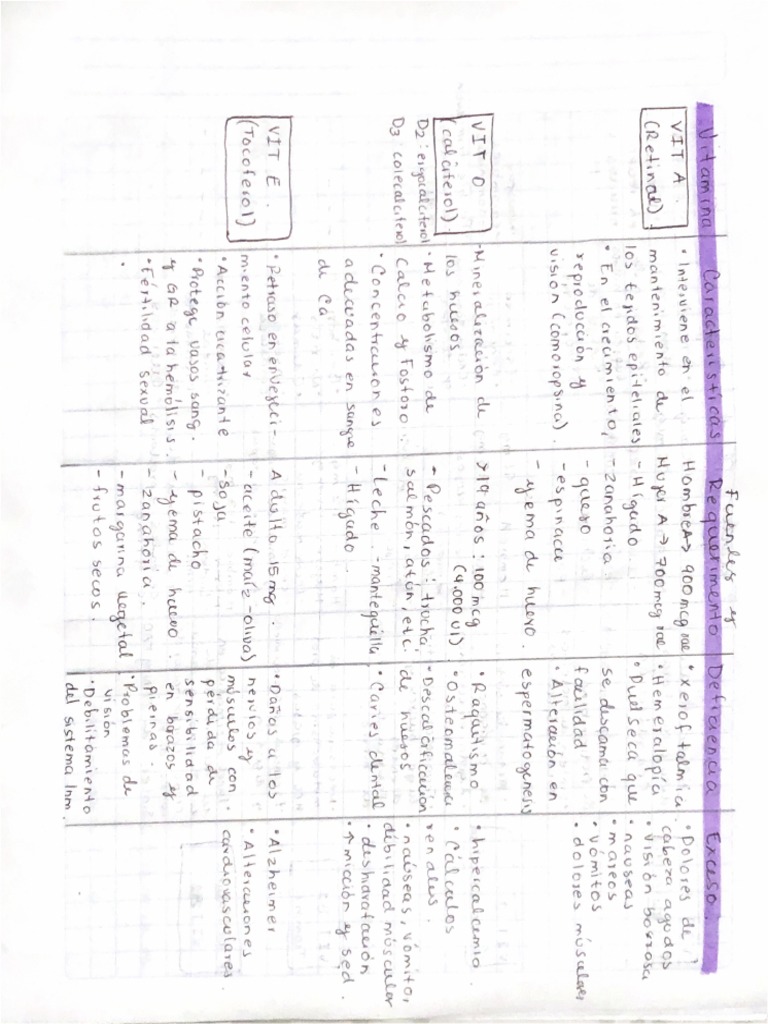 Vitamina
Características
Fuentes y
Requerimento
Deficiencia
Exceso.
VIT A.
(Retinal).
• Interviene en el
mantenimiento de
los tejidos epiteliales
• En el crecimiento,
reproducción y
visión (comoropsina).
Hombre A→ 900 mcg rae
Mujer A → 700 mcg rae
- Hígado
- Zanahoria
- queso
- espinaca
- yema de huevo.
• xeroftalmica.
• Hemeralopía
• Piel seca que
se descama con
facilidad
• Alteración en
espermatogenesis
• Dolores de
cabeza agudos
• visión borrosa
• nauseas
• mareos
• vómitos
• dolores músculares
VIT D
(calciferol).
D2: ergocalciferol
D3: colecalciferol
• Mineralización de
los huesos
• Metabolismo de
Calcio y Fosforo.
• Concentraciones
adecuadas en sangre
de Ca
> 19 años: 100 mcg
(4.000 UI)
- Pescados: trucha
salmón, atún, etc.
- leche. - mantequilla
- Hígado.
• Raquitismo
• Osteomalecia
• Descalcificación
de huesos
• Caries dental
• hipercalcemia.
• Cálculos
renales.
• naúseas, vómito,
debilidad múscular
• deshidratación
• ↑ micción y sed.
VIT E.
(Tocoferol)
• Retraso en envejeci-
miento celular
• Acción cicatrizante
• Protege vasos sang.
y GR a la hemólisis.
• Fértilidad sexual
•
Adulto 15 mg.
- aceite (maíz-oliva)
- soja
- pistacho
- yema de huevo.
- Zanahoria.
- margarina vegetal
- frutos secos.
• Daños a los
nervios y
músculos con
perdida de
sensibilidad
en brazos y
piernas.
• Problemas de
visión
• Debilitamiento
del sistema Inm.
• Alzheimer
• Alteraciones
cardiovasculares.